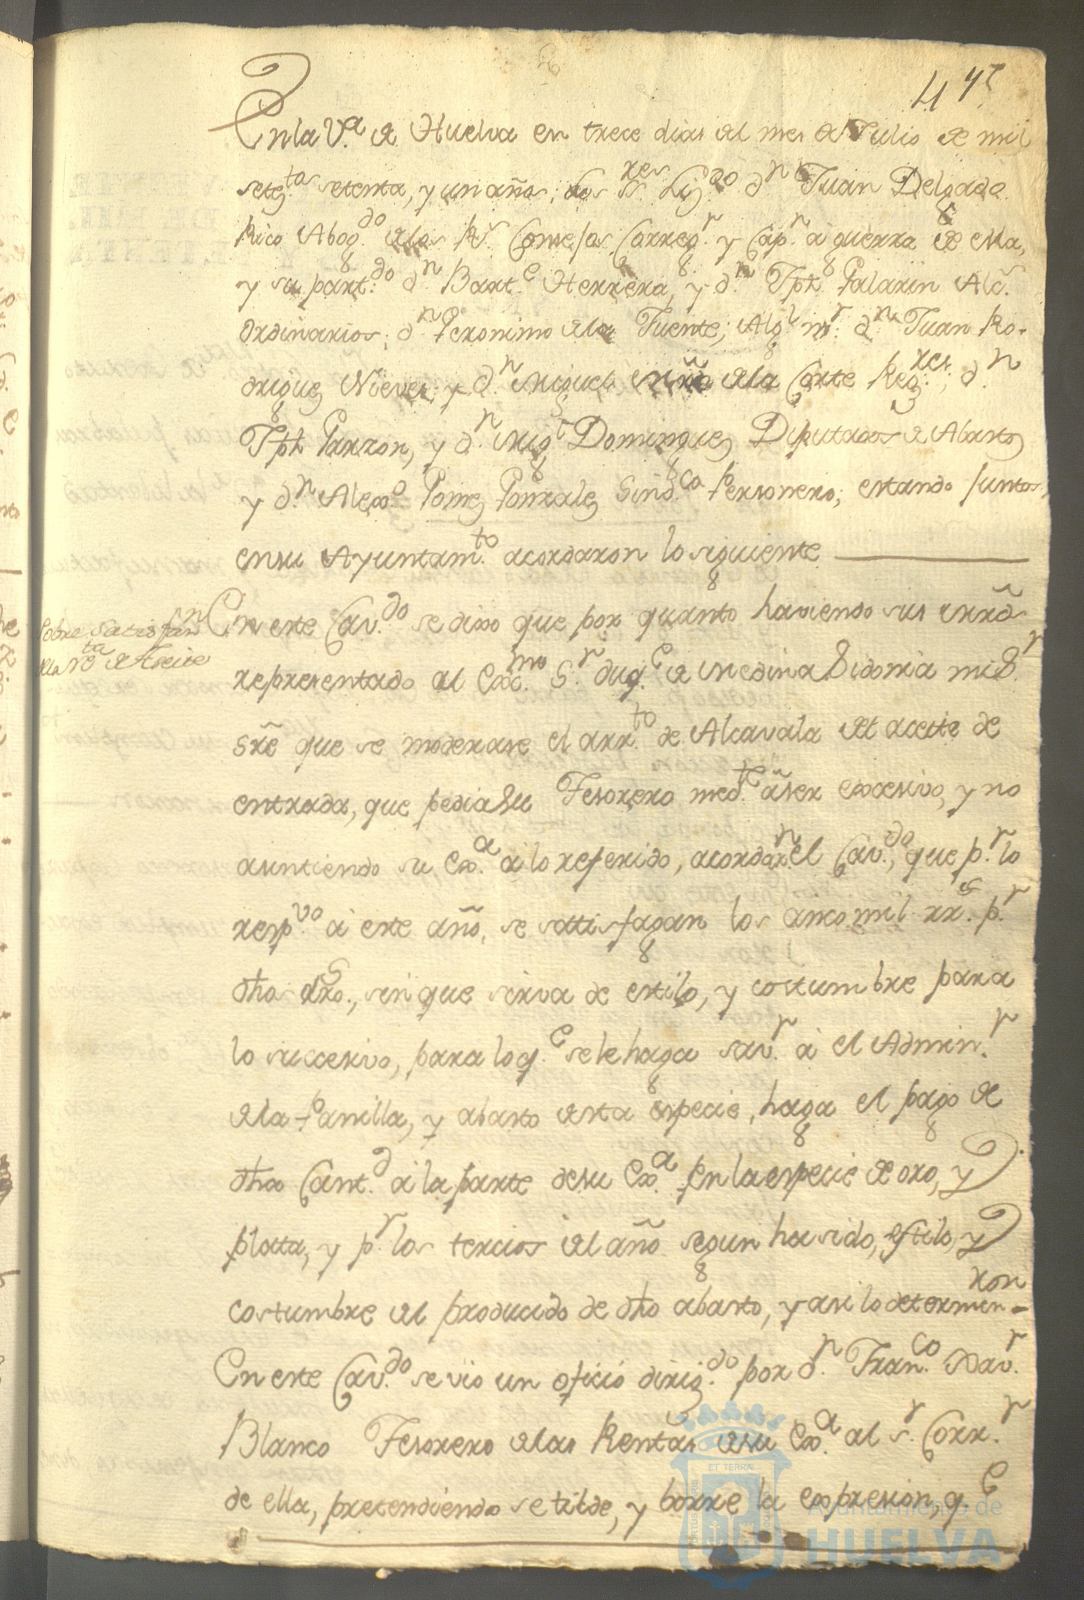 47
En la V.ª de Huelva en trece dias del mes de Julio de mil
setez.tos setenta, y un años; los S.res Liz.do d.n Juan Delgado
Rico Abog.do de los R.s Consejos Correg.r y Cap.n a guerra de ella,
y su part.do d.n Bart.e Herrera, y d.n Jph. Palarin Alc.s
Ordinarios; d.n Geronimo de la Fuente; Alg.l m.r d.n Juan Ro-
driguez Nieves; y d.n Miguel de la Corte Reg.res; d.n
Jph Garzon, y d.n Mig.l Dominguez Diputados de Abastos
y d.n Alexo Gomez Gonzalez Sind.co Personero; estando juntos
en su Ayuntam.to acordaron lo siguiente
Sobre Satisfaz.n
de la r.ta de Aceite
En este Cav.do se dixo que por quanto haviendo sus mrds
representado al Exc.mo S.r duq.e de Medina Sidonia mi S.r
sre que se moderase el arr.to de Alcavala del aceite de
entrada, que pedia su Tesorero med.te a ser excesivo, y no
asintiendo su Ex.a a lo referido, acordar.n el Cav.do, que p.r lo
resp.vo a este año, se sattisfagan los cinco mil rr.s p.r
dho dro.s, sin que sirva de estilo, y costumbre para
lo succesivo, para lo q.e se le haga sav.r a el Admin.r
de la Panilla, y abasto desta especie, haga el pago de
dha Cant.d a la parte de su Ex.a en la especie de oro, y
platta, y p.r los tercios del año segun ha sido, estilo, y
costumbre del producido de dho abasto, y asi lo determin-
ron
En este Cav.do se vio un oficio dirig.do por d.n Fran.co Xav.r
Blanco Tesorero de las Rentas de su Ex.a al s.r Corr.r
de ella, pretendiendo se tilde, y borre la expresion, q.e
Ayuntamiento de
HUELVA